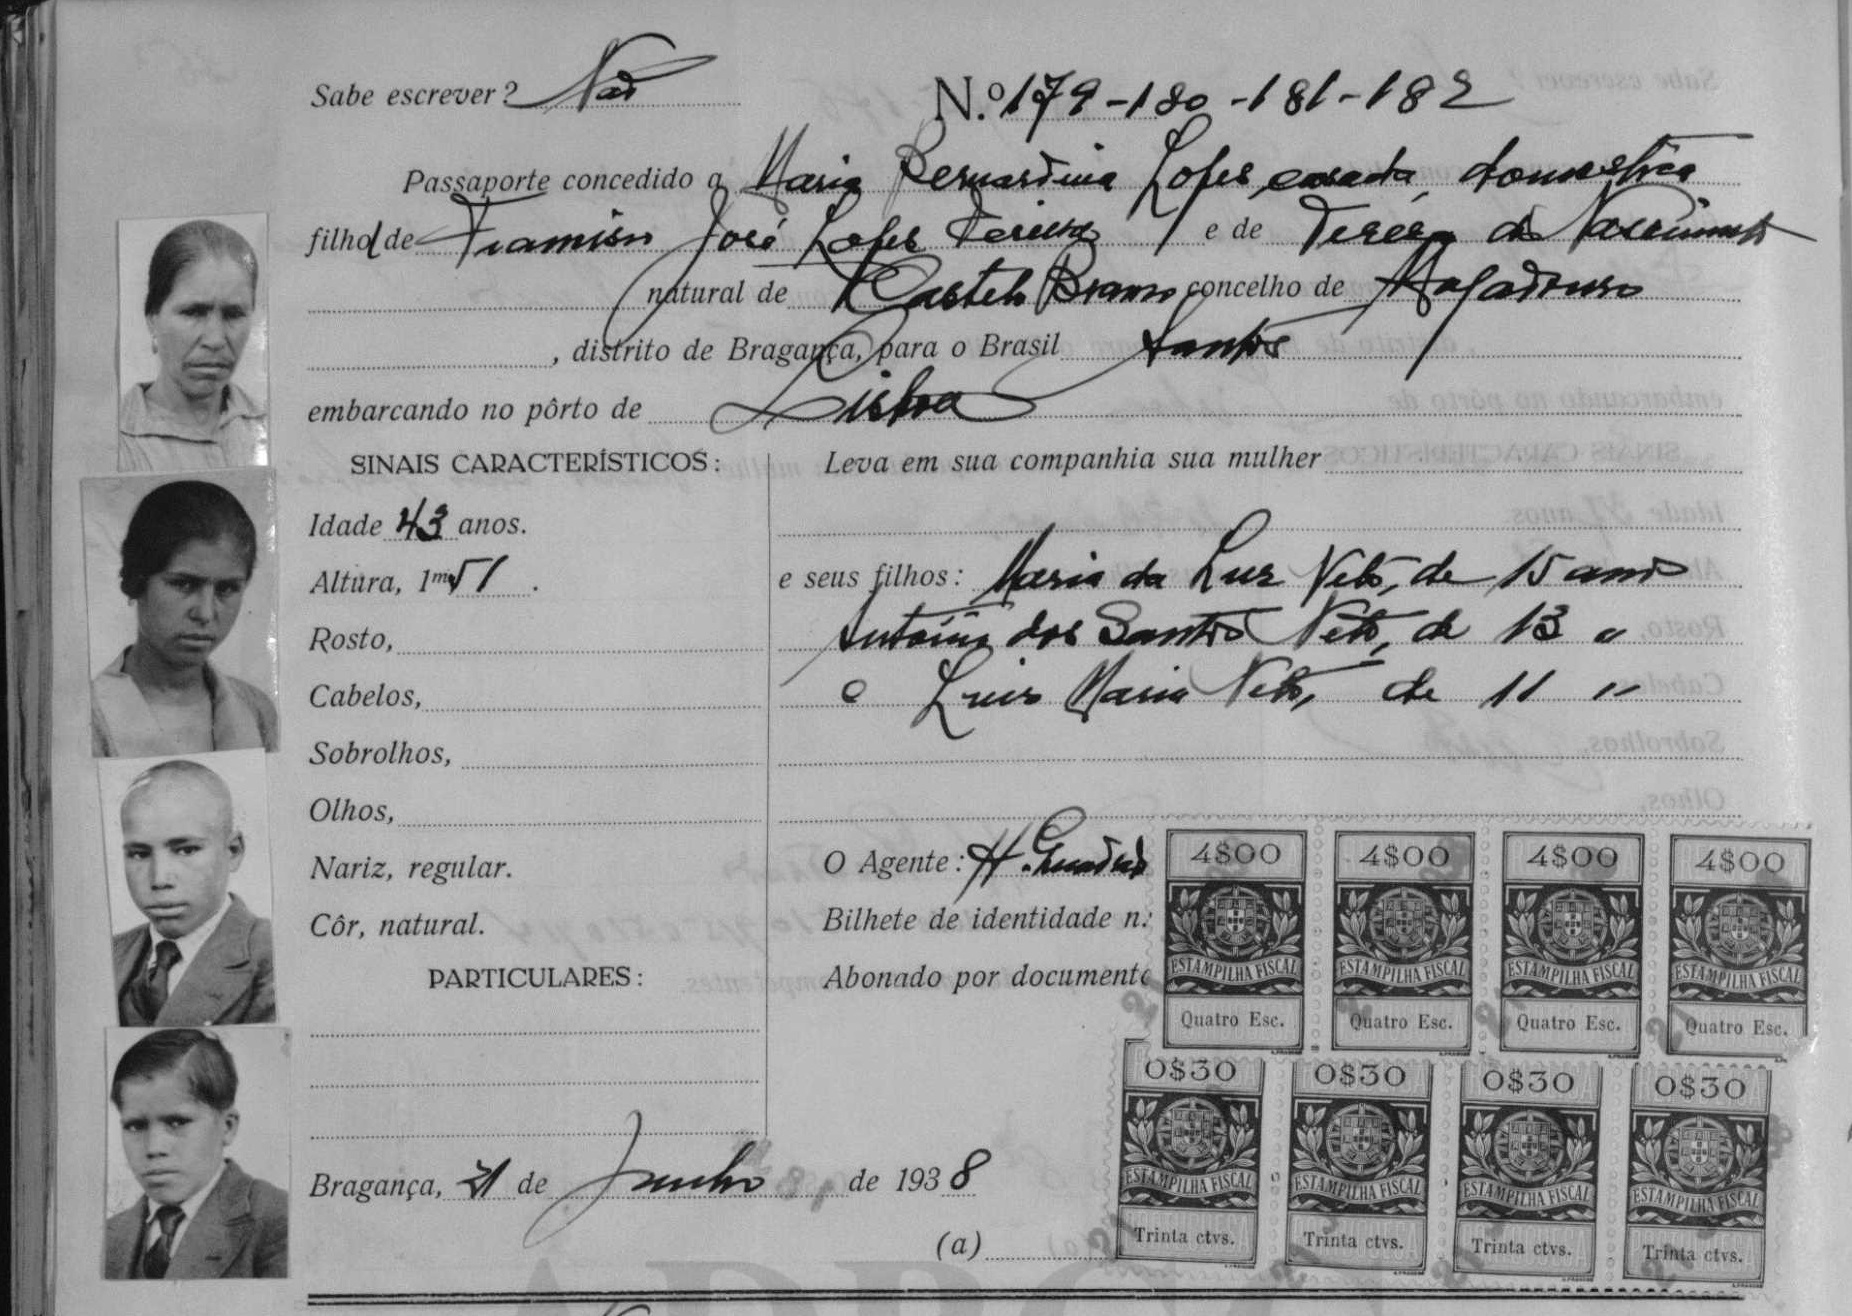 Sabe escrever? Não
N.º 179-180-181-182
Passaporte concedido a Maria Bernardina Lopes, casada, doméstica
filha de Francisco José Lopes Pereira e de Tereza do Nascimento
natural de Castelo Branco, concelho de Mogadouro
, distrito de Bragança, para o Brasil Santos
embarcando no pôrto de Lisboa
SINAIS CARACTERÍSTICOS:
Idade 43 anos.
Altura, 1m 51 .
Rosto,
Cabelos,
Sobrolhos,
Olhos,
Nariz, regular.
Côr, natural.
PARTICULARES:
Leva em sua companhia sua mulher
e seus filhos: Maria da Luz Neto, de 15 anos
António dos Santos Neto, de 13 "
e Luis Maria Neto, de 11 "
O Agente: H.
Bilhete de identidade n.
Abonado por documento
Bragança, 21 de Junho de 1938
(a)
4$00 4$00 4$00 4$00
ESTAMPILHA FISCAL ESTAMPILHA FISCAL ESTAMPILHA FISCAL ESTAMPILHA FISCAL
Quatro Esc. Quatro Esc. Quatro Esc. Quatro Esc.
0$30 0$30 0$30 0$30
ESTAMPILHA FISCAL ESTAMPILHA FISCAL ESTAMPILHA FISCAL ESTAMPILHA FISCAL
Trinta ctvs. Trinta ctvs. Trinta ctvs. Trinta ctvs.